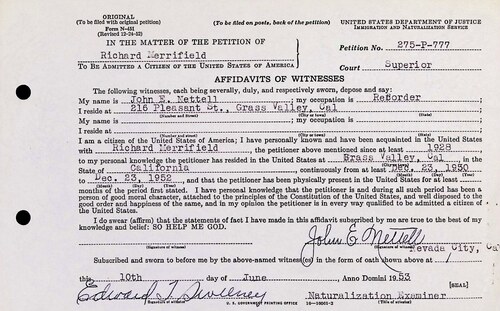 ORIGINAL
(To be filed with original petition)
Form N-451
(Revised 12-24-52)
(To be filed on posts, back of the petition)
UNITED STATES DEPARTMENT OF JUSTICE
IMMIGRATION AND NATURALIZATION SERVICE
IN THE MATTER OF THE PETITION OF
Richard Merrifield
TO BE ADMITTED A CITIZEN OF THE UNITED STATES OF AMERICA
Petition No. 275-P-777
Court Superior
AFFIDAVITS OF WITNESSES
The following witnesses, each being severally, duly, and respectively sworn, depose and say:
My name is John E. Nettell ; my occupation is Recorder
I reside at 216 Pleasant St., Grass Valley, Cal
(Number and Street) (City or town) (State)
My name is ; my occupation is
I reside at
(Number and street) (City or town) (State)
I am a citizen of the United States of America; I have personally known and have been acquainted in the United States
with Richard Merrifield , the petitioner above mentioned since at least 1928
to my personal knowledge the petitioner has resided in the United States at Grass Valley, Cal , in the
State of California continuously from at least Dec. 23, 1950
to Dec. 23, 1952 and that the petitioner has been physically present in the United States for at least
months of the period first stated. I have personal knowledge that the petitioner is and during all such period has been a
person of good moral character, attached to the principles of the Constitution of the United States, and well disposed to
the good order and happiness of the same, and in my opinion the petitioner is in every way qualified to be admitted a citizen of
the United States.
I do swear (affirm) that the statements of fact I have made in this affidavit subscribed by me are true to the best of my
knowledge and belief: SO HELP ME GOD.
John E Nettell
(Signature of witness) (Signature of witness)
Nevada City, Ca
Subscribed and sworn to before me by the above-named witness(es) in the form of oath shown above at
this 10th day of June Anno Domini 1953
Edward J. Sweeney
Naturalization Examiner
(Title)
U. S. GOVERNMENT PRINTING OFFICE